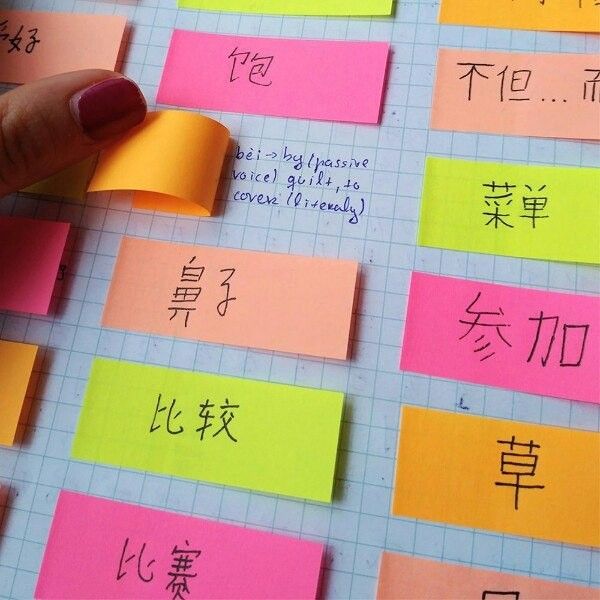 好
饱
bèi → by (passive
voice) quilt, to
cover (literaly)
鼻子
比较
比赛
不但...而
菜单
参加
草